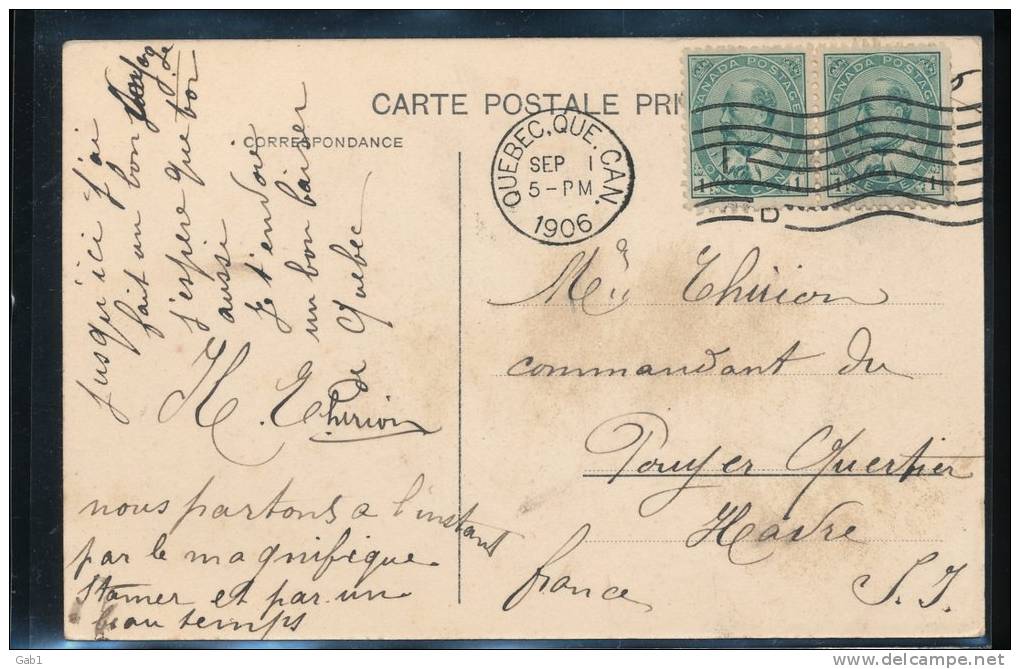 CARTE POSTALE PRI
CORRESPONDANCE
CANADA POSTAGE
CANADA POSTAGE
1 1
1 1
QUEBEC, QUE. CAN.
SEP 1
5-PM
1906
jusqu'ici j'ai
fait un bon voyage
j'espère que toi
aussi
Je t'envoie
un bon baiser
de Quebec
H. Thirion
nous partons a l'instant
par le magnifique
stamer et par un
beau temps
Mr Thirion
commandant du
Pouyer Quertier
Havre
france S. I.
Gab1
www.delcampe.net